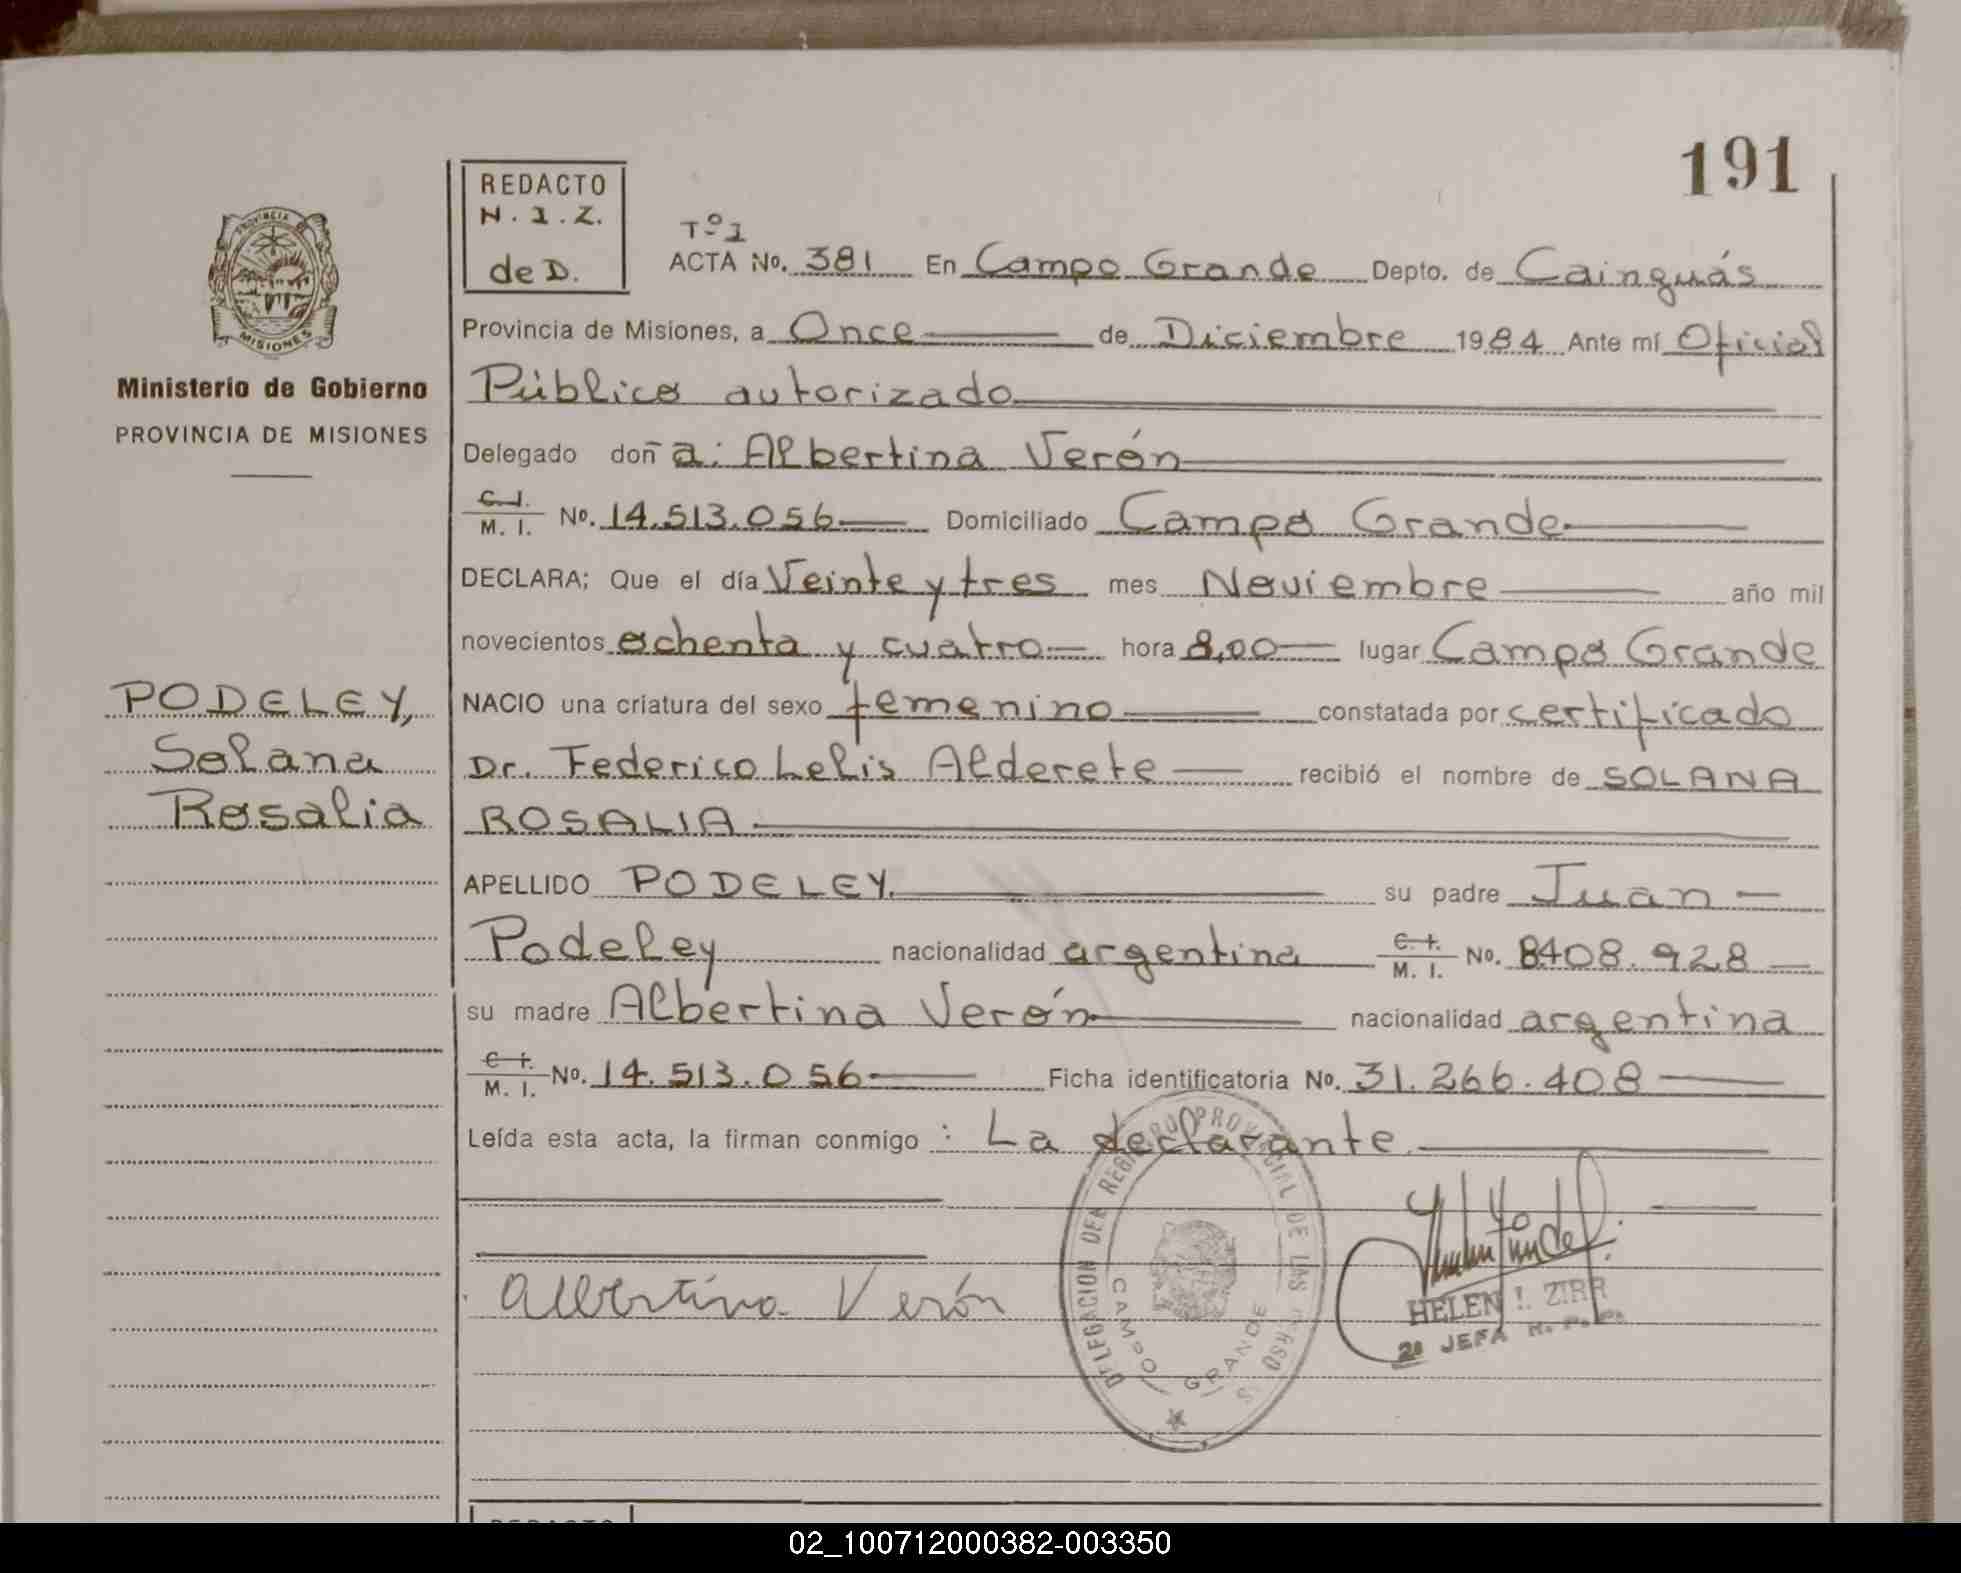 191
REDACTO
H.I.Z.
de D.
PROVINCIA
MISIONES
Ministerio de Gobierno
PROVINCIA DE MISIONES
Tº1
ACTA No. 381 En Campo Grande Depto. de Cainguás
Provincia de Misiones, a Once de Diciembre 1984 Ante mí Oficial
Público autorizado
Delegado doña: Albertina Verón
C.I. M. I. No. 14.513.056 Domiciliado Campo Grande
DECLARA; Que el día Veinte y tres mes Noviembre año mil
novecientos ochenta y cuatro hora 8,00 lugar Campo Grande
PODELEY,
Solana
Rosalia
NACIO una criatura del sexo femenino constatada por certificado
Dr. Federico Lelis Alderete recibió el nombre de SOLANA
ROSALIA
APELLIDO PODELEY. su padre Juan
Podeley nacionalidad argentina C.I. M. I. No. 8408.928
su madre Albertina Verón nacionalidad argentina
C I. M. I. No. 14.513.056 Ficha identificatoria No. 31.266.408
Leída esta acta, la firman conmigo : La declarante.
Albertina Verón
DELEGACION DEL REGISTRO PROVINCIAL DE LAS PERSONAS
CAMPO GRANDE
HELEN I. ZIRR
2ª JEFA R. P. P.
REDACTO
02_100712000382-003350